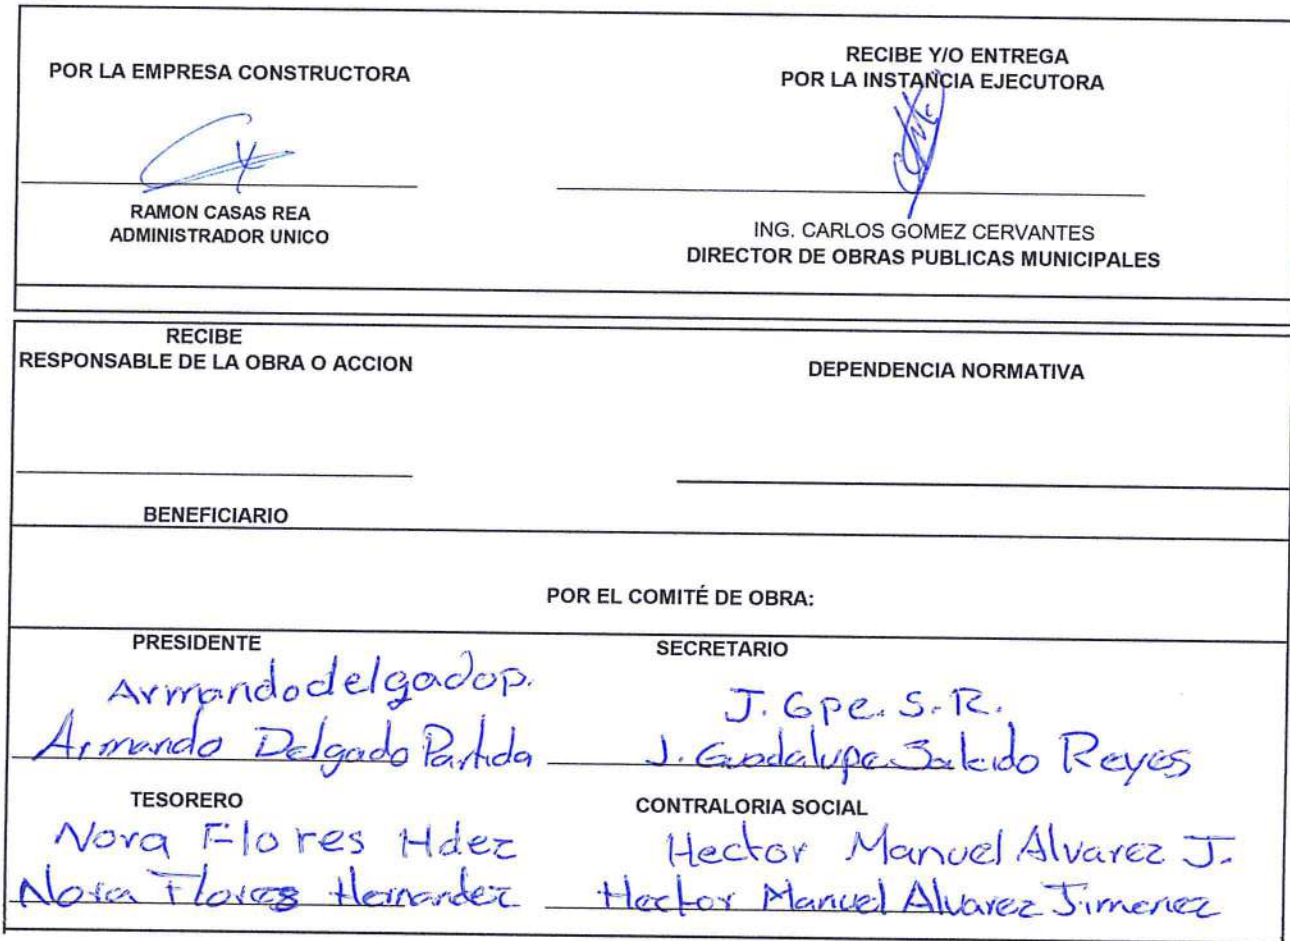 POR LA EMPRESA CONSTRUCTORA
RECIBE Y/O ENTREGA
POR LA INSTANCIA EJECUTORA
RAMON CASAS REA
ADMINISTRADOR UNICO
ING. CARLOS GOMEZ CERVANTES
DIRECTOR DE OBRAS PUBLICAS MUNICIPALES
RECIBE
RESPONSABLE DE LA OBRA O ACCION
DEPENDENCIA NORMATIVA
BENEFICIARIO
POR EL COMITÉ DE OBRA:
PRESIDENTE
Armando delgado p.
Armando Delgado Partida
SECRETARIO
J. Gpe. S. R.
J. Guadalupe Salcido Reyes
TESORERO
Nora Flores Hdez
Nora Flores Hernandez
CONTRALORIA SOCIAL
Hector Manuel Alvarez J.
Hector Manuel Alvarez Jimenez